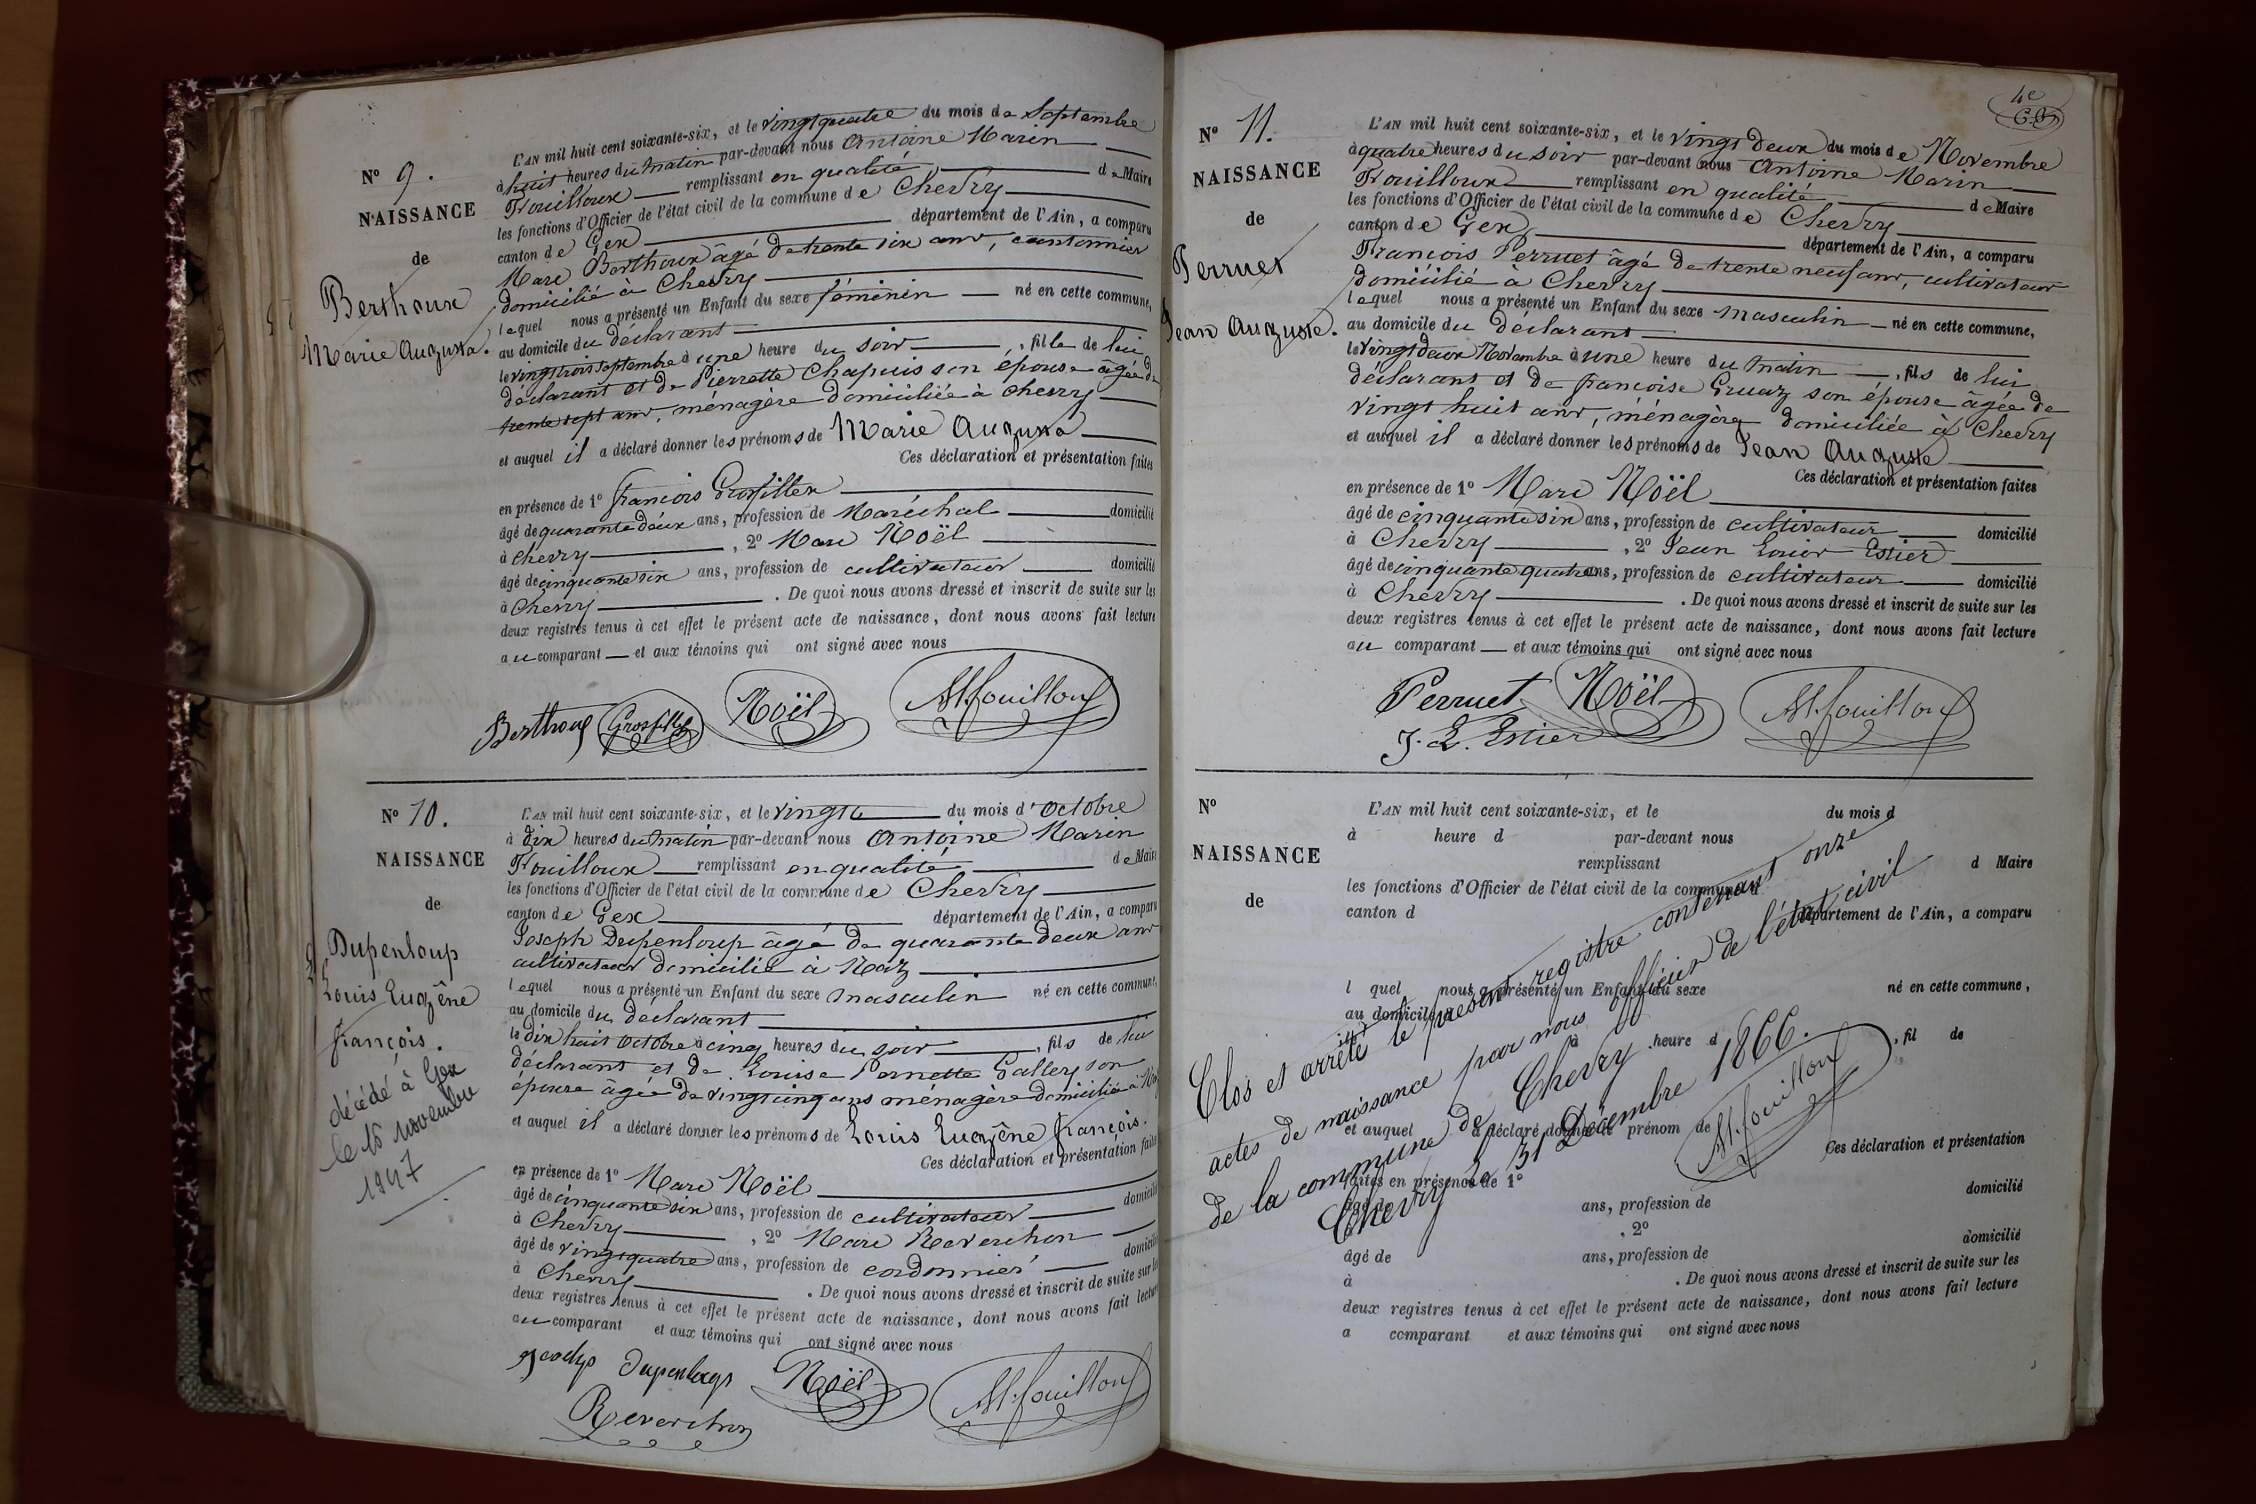 N° 9.
NAISSANCE
de
Berthoux
Marie Augusta.
L'AN mil huit cent soixante-six, et le vingt quatre du mois de Septembre
à huit heures du matin par-devant nous Antoine Marin
Fouilloux remplissant en qualité de Maire
les fonctions d'Officier de l'état civil de la commune de Chevry
canton de Gex département de l'Ain, a comparu
Marc Berthoux âgé de trente six ans, cantonnier
domicilié à Chevry
lequel nous a présenté un Enfant du sexe féminin né en cette commune,
au domicile du déclarant
le vingt trois Septembre à une heure du soir, fille de lui
déclarant et de Pierrette Chapuis son épouse âgée de
trente sept ans, ménagère domiciliée à Chevry
et auquel il a déclaré donner les prénoms de Marie Augusta
Ces déclaration et présentation faites
en présence de 1° François Grosfillex
âgé de quarante deux ans, profession de Maréchal domicilié
à Chevry, 2° Marc Noël
âgé de cinquante six ans, profession de cultivateur domicilié
à Chevry. De quoi nous avons dressé et inscrit de suite sur les
deux registres tenus à cet effet le présent acte de naissance, dont nous avons fait lecture
au comparant et aux témoins qui ont signé avec nous
Berthoux Grosfillex Noël AM. fouilloux
N° 10.
NAISSANCE
de
Dupenloup
Louis Eugène
françois.
décédé à Gex
le 15 novembre
1947
L'AN mil huit cent soixante-six, et le vingt du mois d'Octobre
à dix heures du matin par-devant nous Antoine Marin
Fouilloux remplissant en qualité de Maire
les fonctions d'Officier de l'état civil de la commune de Chevry
canton de Gex département de l'Ain, a comparu
Joseph Dupenloup âgé de quarante deux ans
cultivateur domicilié à Naz
lequel nous a présenté un Enfant du sexe masculin né en cette commune,
au domicile du déclarant
le dix huit Octobre à cinq heures du soir, fils de lui
déclarant et de Louise Pernette Galley son
épouse âgée de vingt cinq ans ménagère domiciliée à Naz
et auquel il a déclaré donner les prénoms de Louis Eugène françois.
Ces déclaration et présentation faites
en présence de 1° Marc Noël
âgé de cinquante six ans, profession de cultivateur domicilié
à Chevry, 2° Marc Reverchon
âgé de vingt quatre ans, profession de cordonnier domicilié
à Chevry. De quoi nous avons dressé et inscrit de suite sur les
deux registres tenus à cet effet le présent acte de naissance, dont nous avons fait lecture
au comparant et aux témoins qui ont signé avec nous
Dupenloup Noël AM. fouilloux
Reverchon
4e
N° 11.
NAISSANCE
de
Perruet
Jean Auguste.
L'AN mil huit cent soixante-six, et le vingt deux du mois de Novembre
à quatre heures du soir par-devant nous Antoine Marin
Fouilloux remplissant en qualité de Maire
les fonctions d'Officier de l'état civil de la commune de Chevry
canton de Gex département de l'Ain, a comparu
François Perruet âgé de trente neuf ans, cultivateur
domicilié à Chevry
lequel nous a présenté un Enfant du sexe masculin né en cette commune,
au domicile du déclarant
le vingt deux Novembre à une heure du matin, fils de lui
déclarant et de françoise Gruaz son épouse âgée de
vingt huit ans, ménagère domiciliée à Chevry
et auquel il a déclaré donner les prénoms de Jean Auguste
Ces déclaration et présentation faites
en présence de 1° Marc Noël
âgé de cinquante six ans, profession de cultivateur domicilié
à Chevry, 2° Jean Louis Estier
âgé de cinquante quatre ans, profession de cultivateur domicilié
à Chevry. De quoi nous avons dressé et inscrit de suite sur les
deux registres tenus à cet effet le présent acte de naissance, dont nous avons fait lecture
au comparant et aux témoins qui ont signé avec nous
Perruet Noël AM. fouilloux
J. L. Estier
N°
NAISSANCE
de
L'AN mil huit cent soixante-six, et le du mois d
à heure d par-devant nous
remplissant d Maire
les fonctions d'Officier de l'état civil de la commune d
canton d département de l'Ain, a comparu
l quel nous a présenté un Enfant du sexe né en cette commune,
au domicile d
à heure d, fil de
et auquel a déclaré donner prénom de
Ces déclaration et présentation
faites en présence de 1°
âgé de ans, profession de domicilié
, 2°
âgé de ans, profession de domicilié
à. De quoi nous avons dressé et inscrit de suite sur les
deux registres tenus à cet effet le présent acte de naissance, dont nous avons fait lecture
a comparant et aux témoins qui ont signé avec nous
Clos et arrêté le présent registre contenant onze
actes de naissance par nous officier de l'état civil
de la commune de Chevry
Chevry le 31 Décembre 1866.
AM. fouilloux